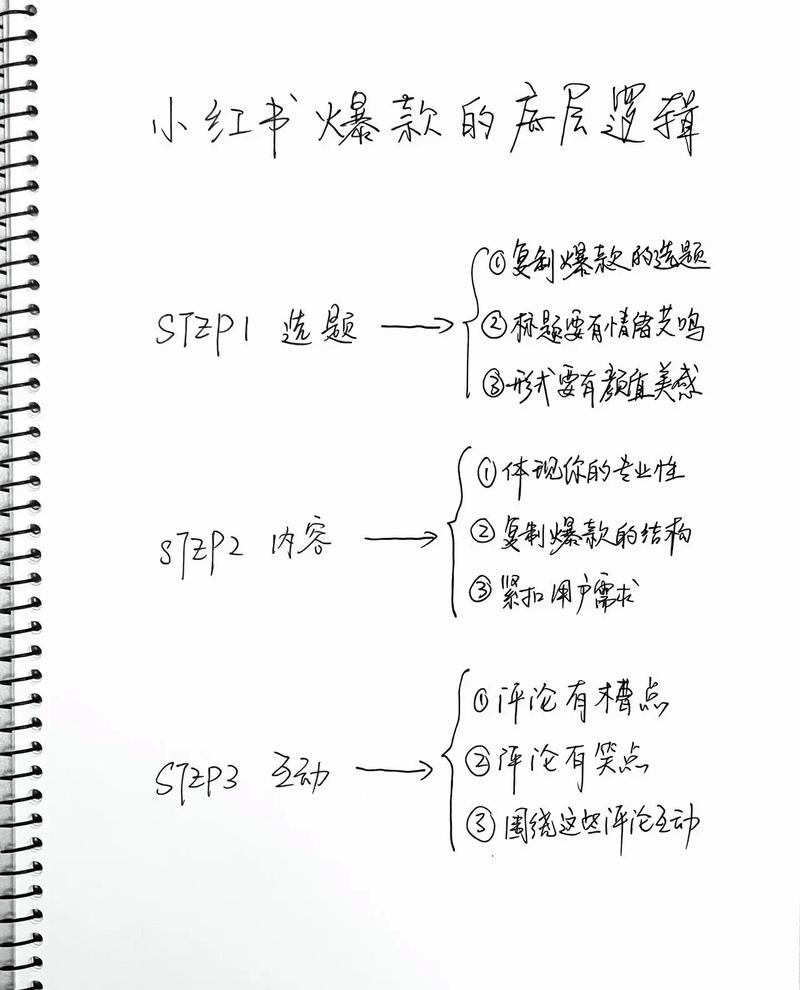 小红书爆款的底层逻辑
STEP1 选题 → ①复制爆款的选题
②标题要有情绪共鸣
③形式要有颜值美感
STEP2 内容 → ①体现你的专业性
②复制爆款的结构
③紧扣用户需求
STEP3 互动 → ①评论有槽点
②评论有笑点
③围绕这些评论互动